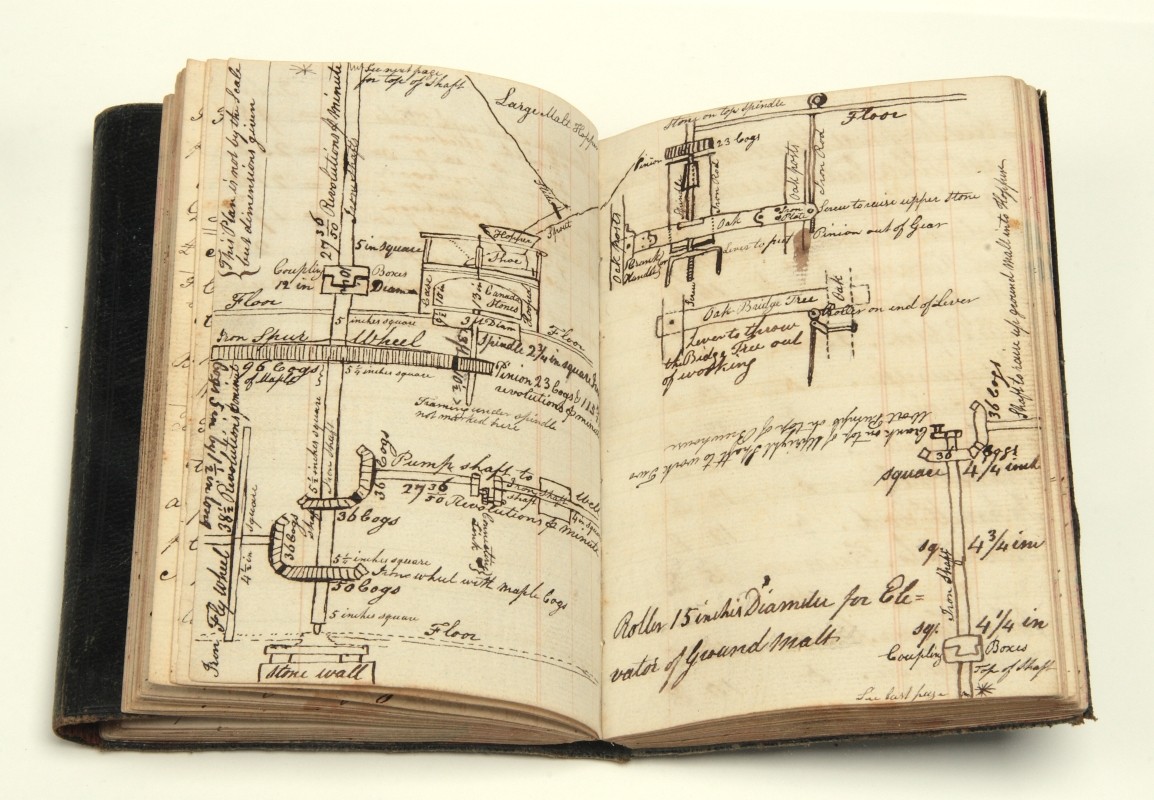 This Plan is not by the Scale
but dimensions given
27 36/50 Revolutions P minute
Iron Shaft
See next page
for top of Shaft
Large Malt Hopper
Spout
5 in Square
Coupling Boxes
12 in Diam
Hopper
Shoe
Case
Canada
Stones
Floor
5 inches square
Iron Spur Wheel
96 Cogs
of Maple
5 1/4 inches square
Spindle 2 3/4 in square
Floor
Pinion 23 Cogs
revolutions P minute
Framing under spindle
not marked here
5 1/2 inches square
Iron Shaft
36 Cogs
Pump shaft to
Iron Shaft
Well
27 36/50 Revolutions P minute
4 in Square
Coupling
36 Cogs
Shaft
4 1/2 in Square
36 Cogs
5 1/2 inches square
Iron wheel with maple Cogs
50 Cogs
5 inches square
Iron Fly Wheel
38 1/2 Revolutions P minute
Floor
Stone wall
Stone on top spindle
Floor
Pinion
23 Cogs
Spindle
Iron Rod
Oak posts
Iron Rod
Oak
Iron
Plate
Screw to raise upper Stone
Pinion out of Gear
Lever to put
Oak Posts
Handle
Screw
Oak Bridge Tree
Oak
Roller on end of Lever
Lever to throw
the Bridge Tree out
of working
Crank on top of Upright Shaft to work Two
Wort Pumps on top of Brewhouse
Shaft to raise up ground Malt into Hopper
36 Cogs
36 Cogs
square 4 1/4 inch
sq. 4 3/4 inch
Iron Shaft
sq. 4 1/4 in
Coupling Boxes
Top of Shaft
Roller 15 inches Diameter for Ele=
vator of Ground Malt
See last page